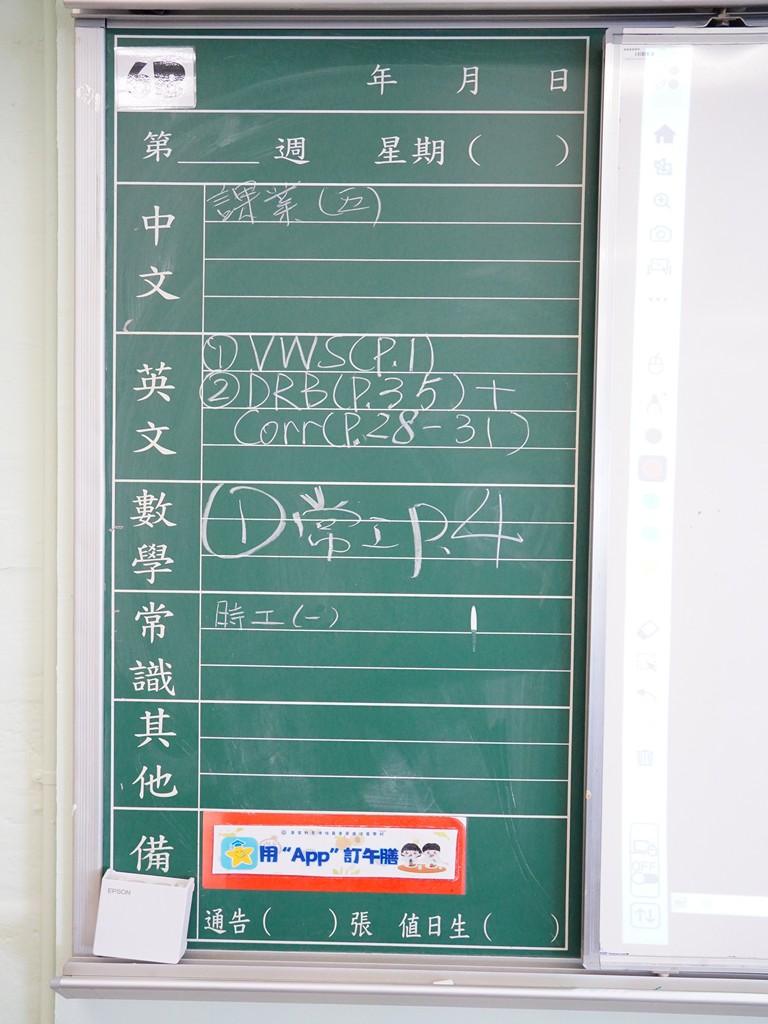 6D
年 月 日
第____週 星期( )
中文
課業(五)
英文
①VWS(P.1)
②DRB(P.35)+
Corr(P.28-31)
數學
①常工P.4
常識
時工(一)
其他
備
用“App”訂午膳
EPSON
通告( )張 值日生( )
OFF